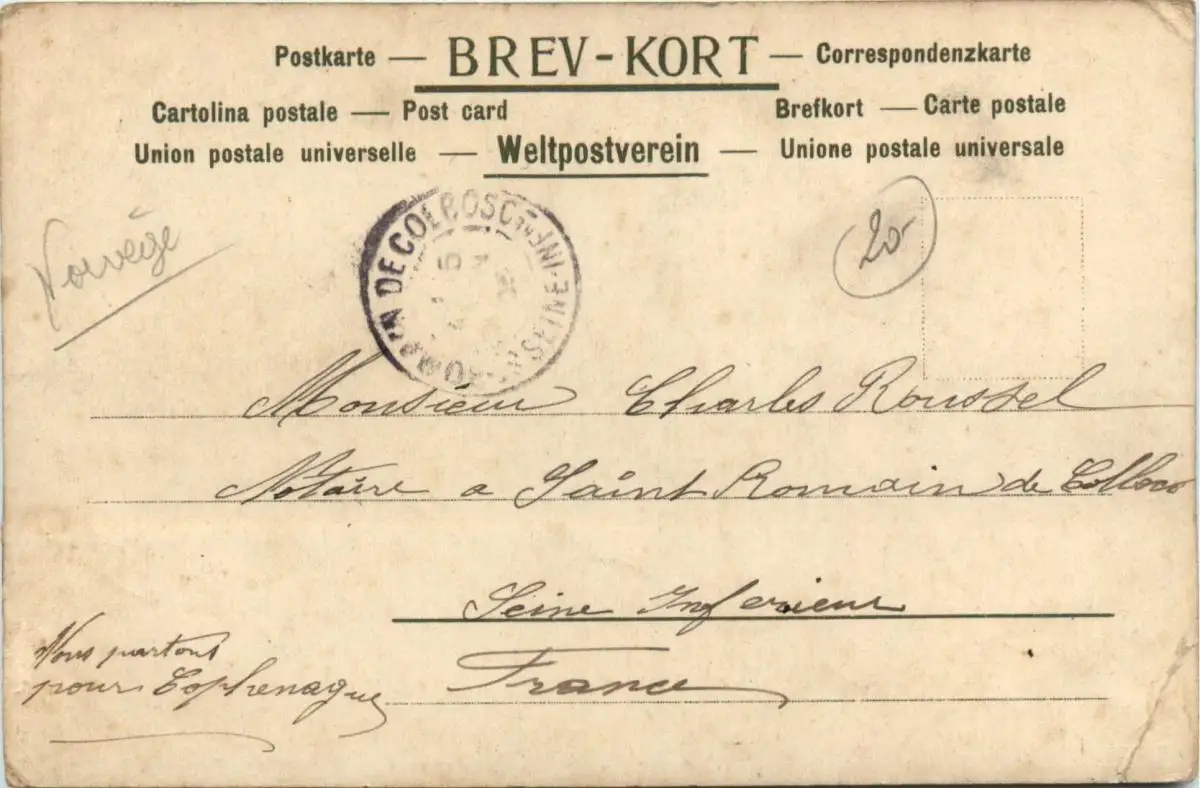 Postkarte — BREV-KORT — Correspondenzkarte
Cartolina postale — Post card Brefkort — Carte postale
Union postale universelle — Weltpostverein — Unione postale universale
Norvège
20-
DE COLBOSC SEINE-INF
Monsieur Charles Roussel
Notaire a Saint Romain de Collboc
Seine Inferieur
France
Nous partons
pour Cophenague